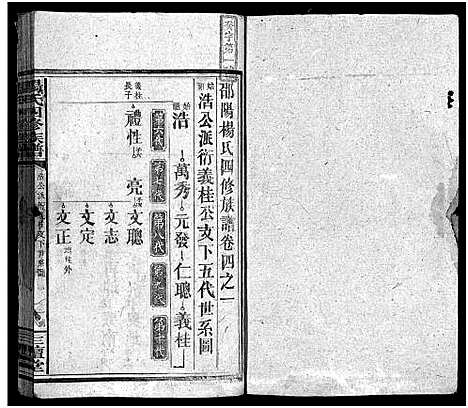 邵陽楊氏四修族譜卷四之一
始祖浩公派衍義桂公支下五代世系圖
始祖浩—萬秀—元發—仁聰—義桂
第六代 第七代 第八代 第九代 第十代
義桂長子 禮性 亮 文聰
文志
文定
文正
楊氏四修族譜
三鱣堂